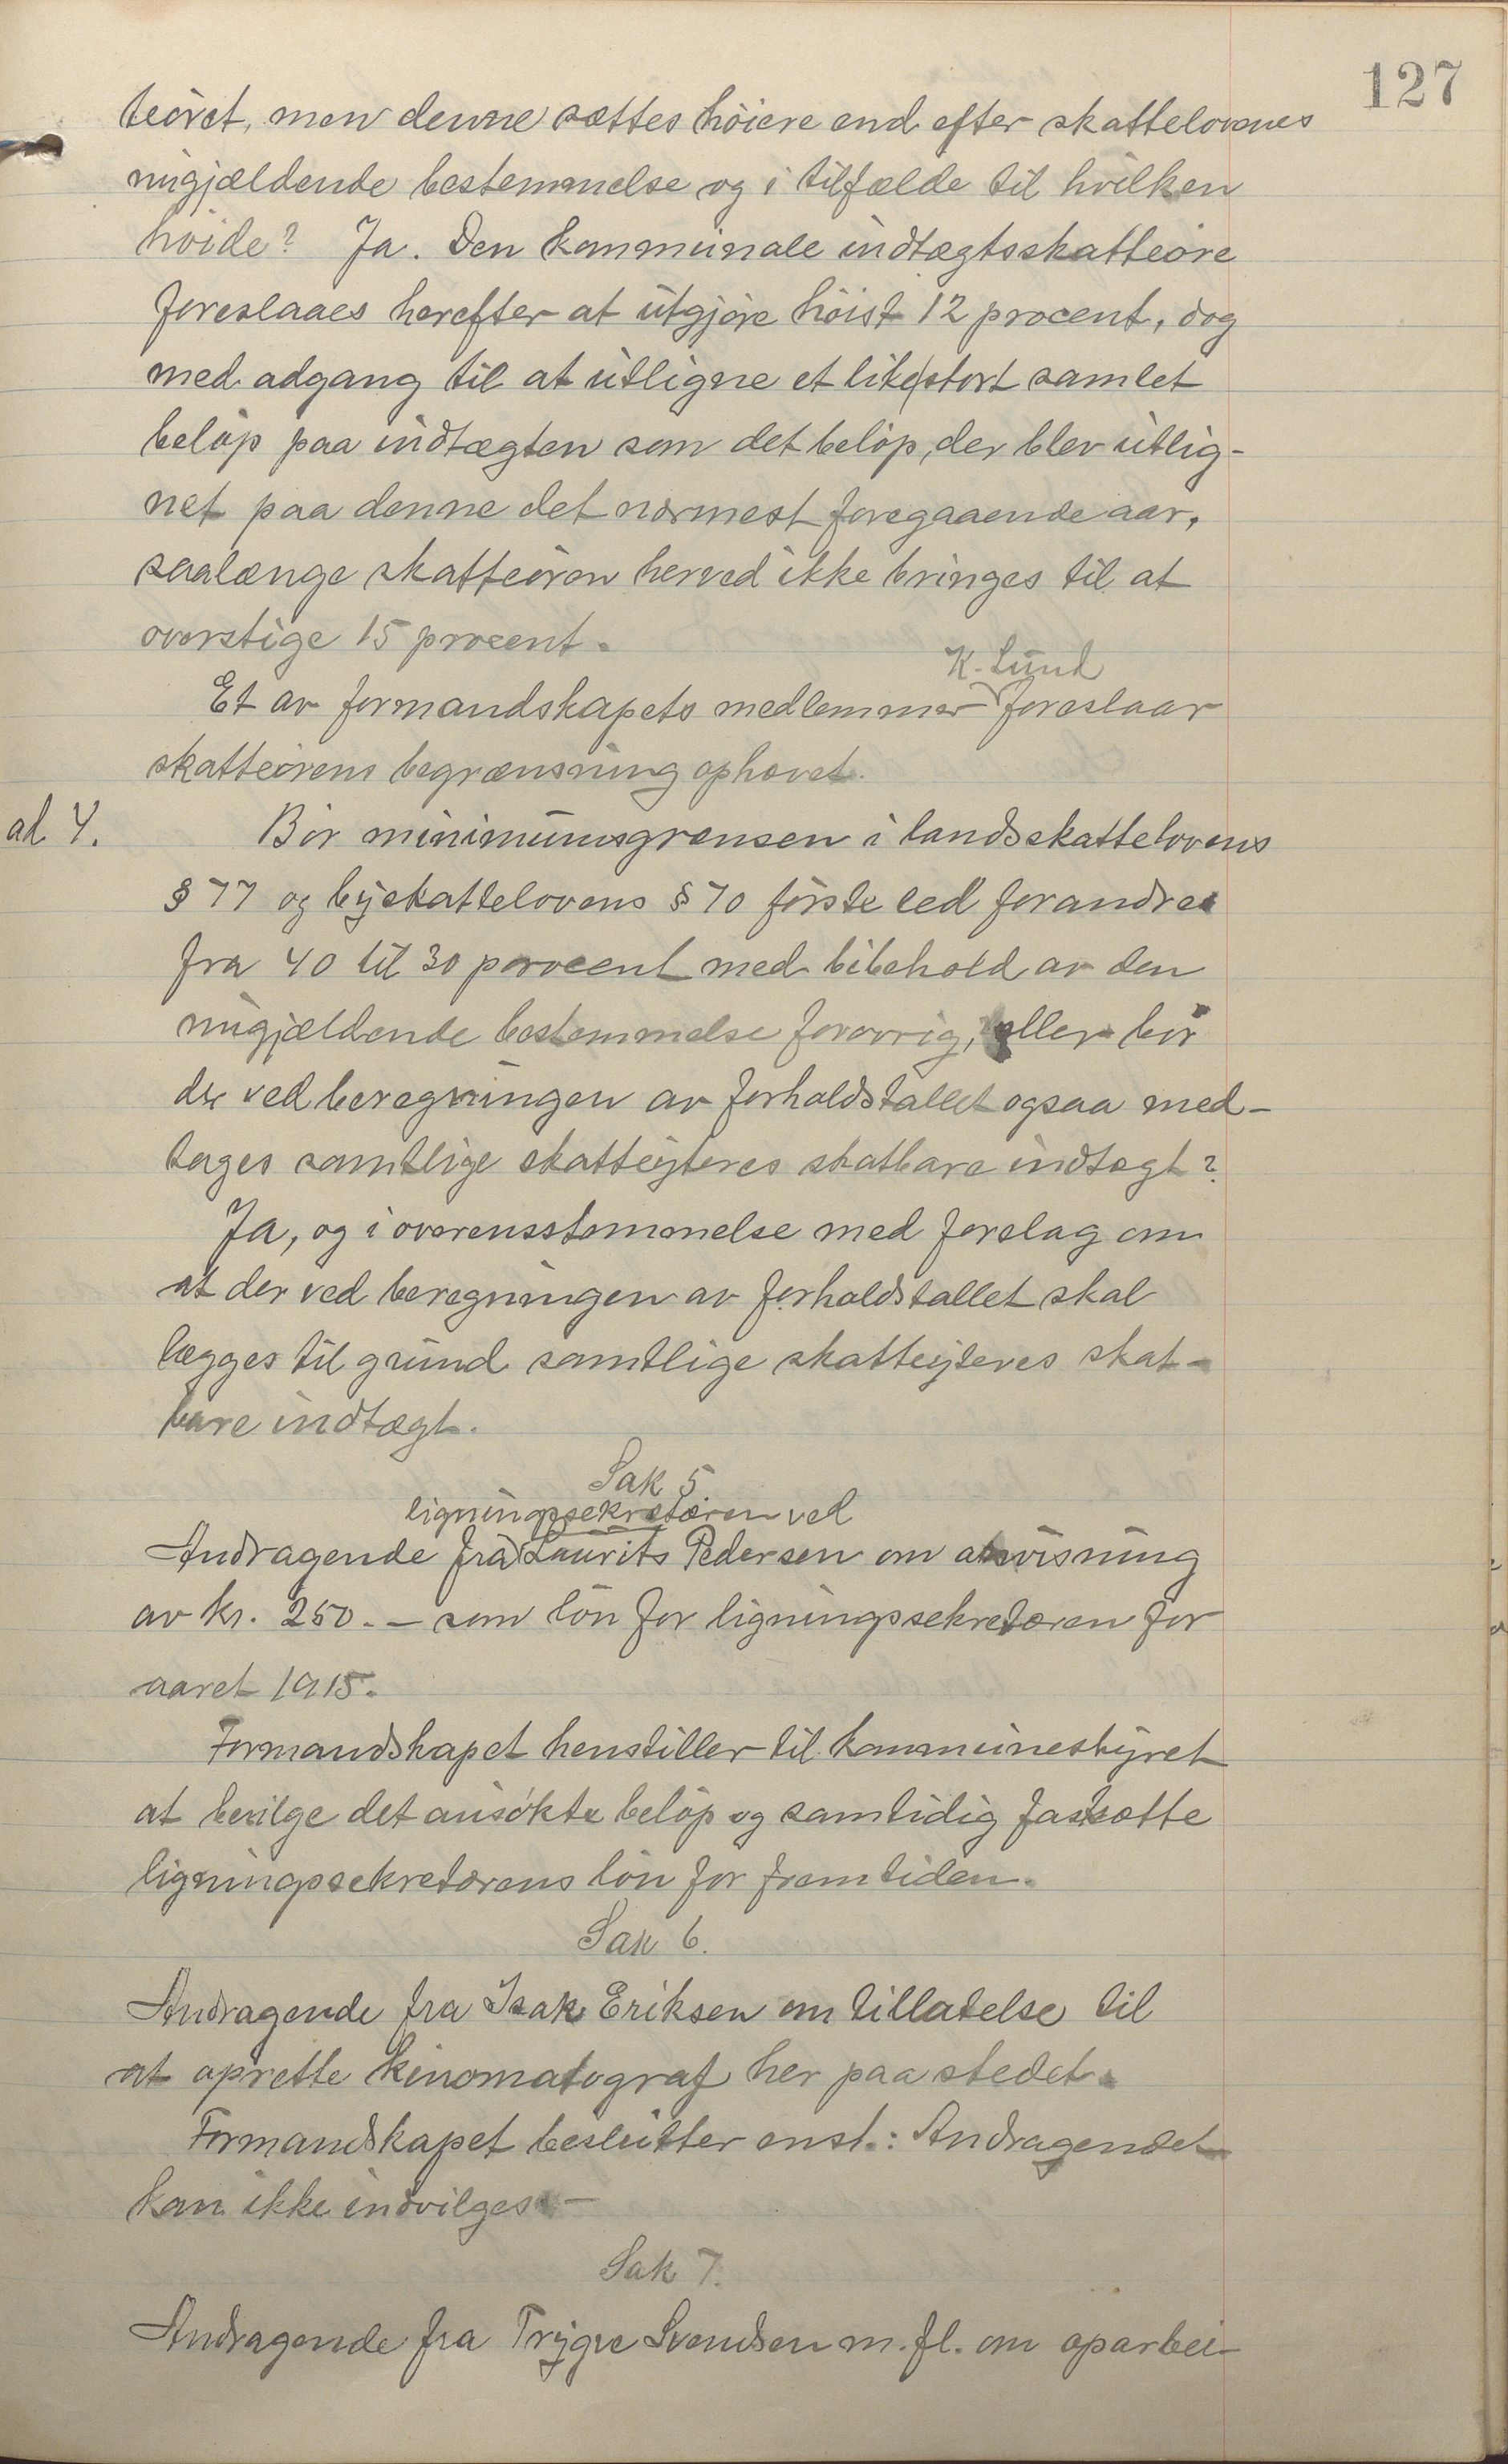 127
teöret, men denne sættes höiere end efter skattelovenes
nugjældende bestemmelse og i tilfælde til hvilken
höide? Ja. Den kommunale indtægtsskatteöre
foreslaaes herefter at utgjöre höist 12 procent, dog
med adgang til at utligne et like stort samlet
belöp paa indtægten som det belöp, der blev utlig-
net paa denne det nærmest foregaaende aar,
saalænge skatteören herved ikke bringes til at
overstige 15 procent.
K. Lund
Et av formandskapets medlemmer foreslaar
skatteörens begrænsning ophævet.
ad 4. Bör minimumsgrænsen i landsskattelovens
§ 77 og byskattelovens § 70 förste led forandres
fra 40 til 30 procent med bibehold av den
nugjældende bestemmelse forövrig, eller bör
der ved beregningen av forholdstallet ogsaa med-
tages samtlige skatteyteres skatbare indtægt?
Ja, og i overensstemmelse med forslag om
at der ved beregningen av forholdstallet skal
lægges til grund samtlige skatteyteres skat-
bare indtægt.
Sak 5.
ligningssekretæren ved
Andragende fra Laurits Pedersen om anvisning
av kr. 250.- som lön for ligningssekretæren for
aaret 1915.
Formandskapet henstiller til kommunestyret
at bevilge det ansökte belöp og samtidig fastsætte
ligningssekretærens lön for fremtiden.
Sak 6.
Andragende fra Isak Eriksen om tillatelse til
at oprette kinomatograf her paa stedet.
Formandskapet beslutter enst.: Andragendet
kan ikke indvilges.-
Sak 7.
Andragende fra Trygve Svendsen m.fl. om oparbei-